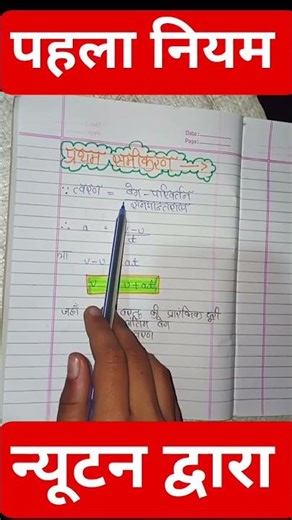 पहला नियम
Date:
Page:
प्रथम समीकरण
∵ त्वरण = वेग - परिवर्तन
समयान्तराल
∴ a
t
या v-u at
u + at
जहाँ की प्रारंभिक दूरी
वेग
न्यूटन द्वारा